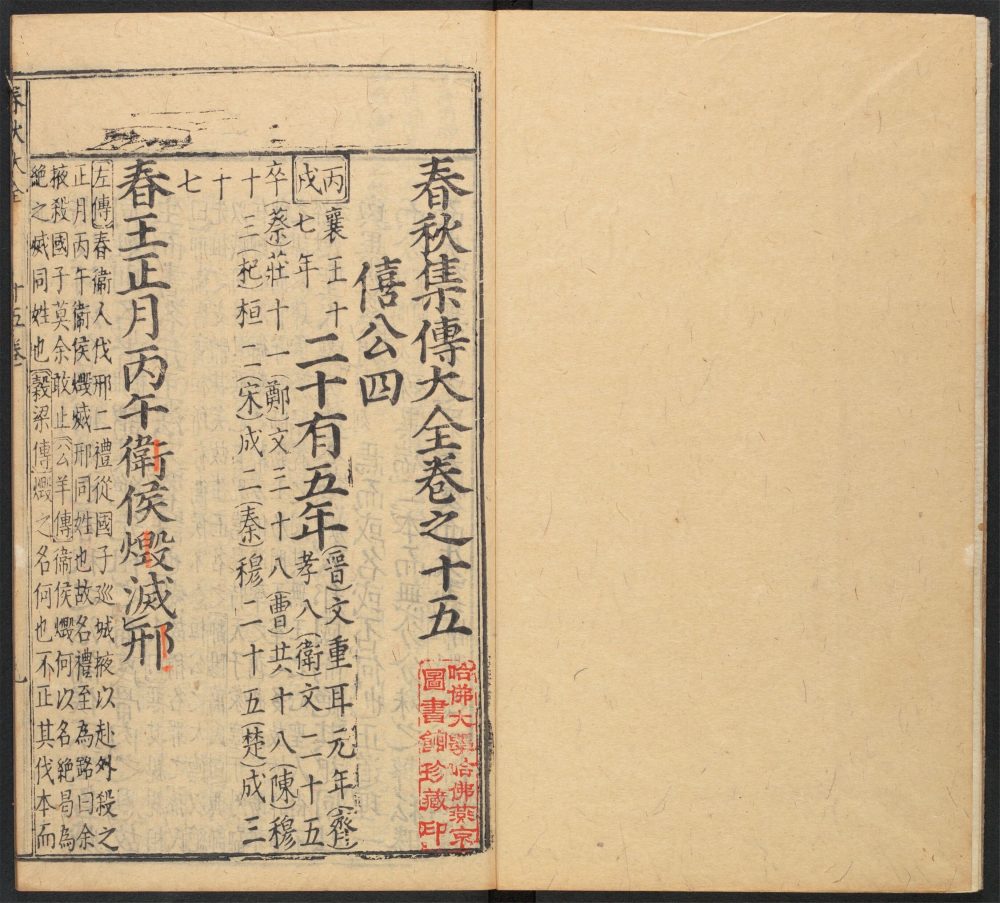 春秋集傳大全卷之十五
僖公四
丙戌 襄王十七年 二十有五年 晉文重耳元年 齊孝八 衛文二十五
卒 蔡莊十一 鄭文三十八 曹共十八 陳穆
十三 杞桓二 宋成二 秦穆二十五 楚成三
十
七
春王正月丙午衛侯燬滅邢
左傳春衛人伐邢二禮從國子廵城掖以赴外殺之
正月丙午衛侯燬滅邢同姓也故名禮至為銘曰余
掖殺國子莫余敢止公羊傳衛侯燬何以名絶曷為
絶之滅同姓也穀梁傳燬之名何也不正其伐本而
春秋大全 十五卷
哈佛大學哈佛燕京
圖書館珍藏印